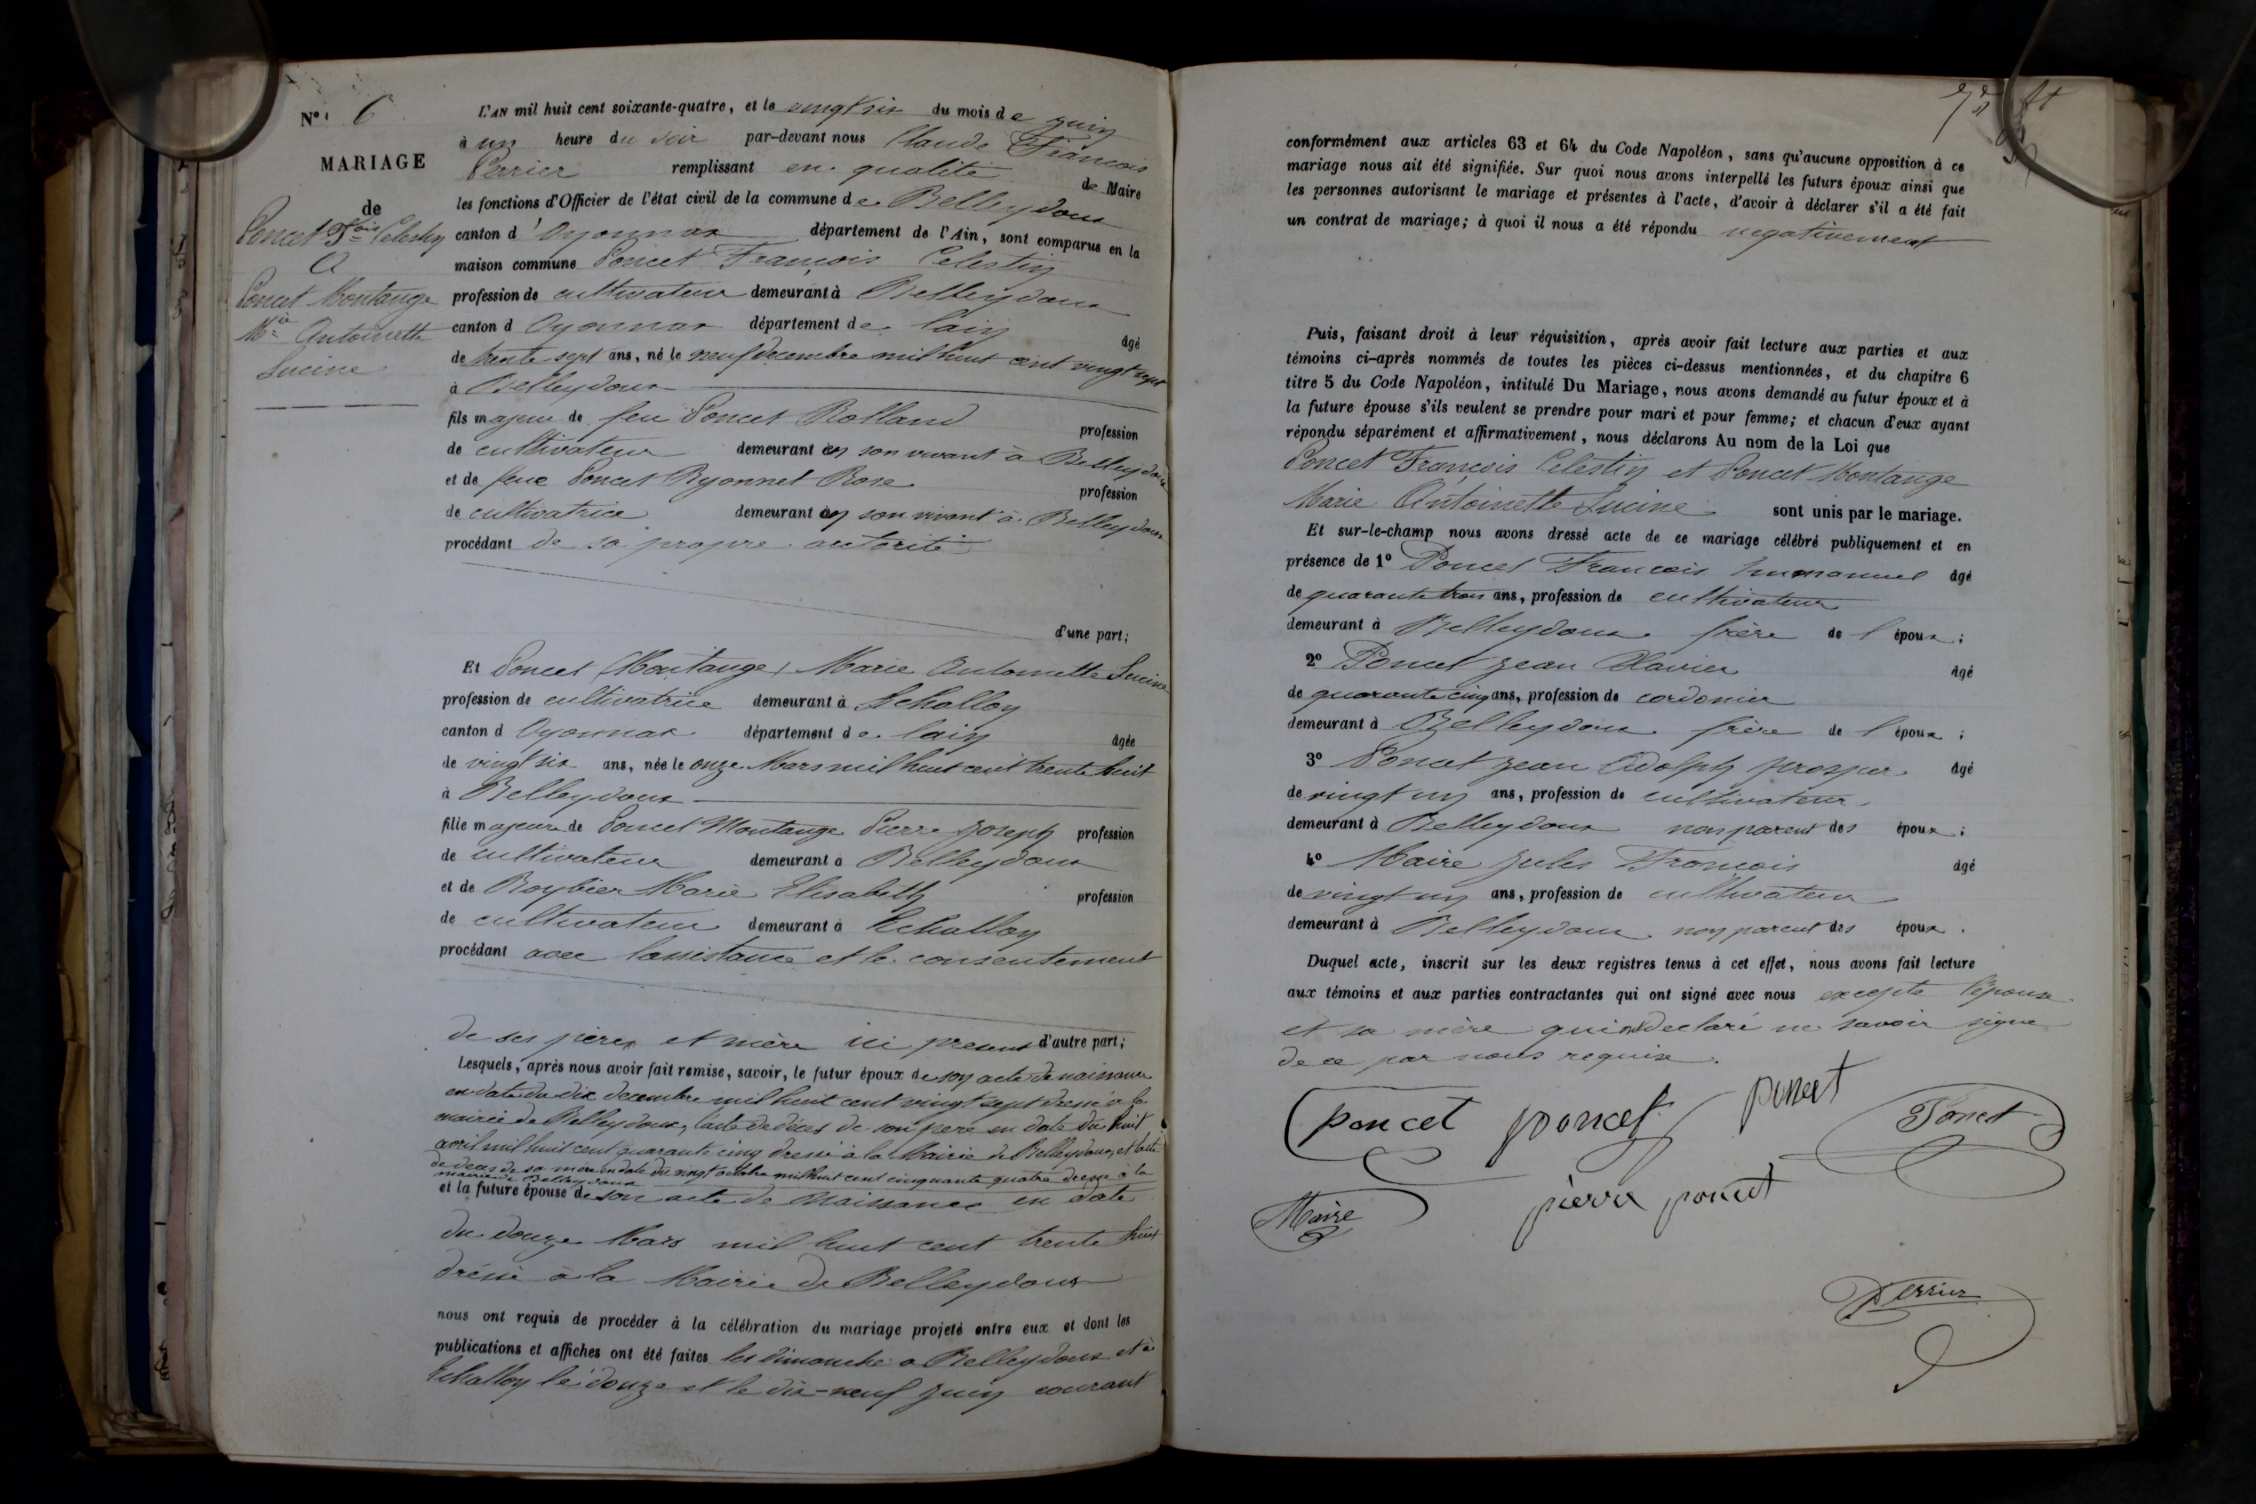 N° 6
MARIAGE
de
Poncet Fois Celestin
&
Poncet Montange
Mie Antoinette
Lucine
L'AN mil huit cent soixante-quatre, et le vingt six du mois de juin
à un heure du soir par-devant nous Claude François
Perrier remplissant en qualité de Maire
les fonctions d'Officier de l'état civil de la commune de Belleydoux
canton d'Oyonnax département de l'Ain, sont comparus en la
maison commune Poncet François Celestin
profession de cultivateur demeurant à Belleydoux
canton d Oyonnax département de lain âgé
de trente sept ans, né le neuf decembre mil huit cent vingt sept
à Belleydoux
fils majeur de feu Poncet Rolland profession
de cultivateur demeurant en son vivant à Belleydoux
et de feue Poncet Ryonnet Rose profession
de cultivatrice demeurant en son vivant à Belleydoux
procédant de sa propre autorité
d'une part;
Et Poncet Montange, Marie Antoinette Lucine
profession de cultivatrice demeurant à Echallon
canton d Oyonnax département de lain âgée
de vingt six ans, née le onze Mars mil huit cent trente huit
à Belleydoux
fille majeure de Poncet Montange Pierre Joseph profession
de cultivateur demeurant à Belleydoux
et de Roybier Marie Elisabeth profession
de cultivateur demeurant à Echallon
procédant avec lassistance et le consentement
de ses pères et mère ici present d'autre part;
Lesquels, après nous avoir fait remise, savoir, le futur époux de son acte de naissance
en date du dix decembre mil huit cent vingt sept dressé à la
mairie de Belleydoux, lacte de déces de son pere en date du huit
avril mil huit cent quarante cinq dressé à la Mairie de Belleydoux, et lacte
de deces de sa mère en date du vingt octobre mil huit cent cinquante quatre dressé à la
mairie de Belleydoux
et la future épouse de son acte de naissance en date
du douze Mars mil huit cent trente huit
dréssé à la Mairie de Belleydoux
nous ont requis de procéder à la célébration du mariage projeté entre eux et dont les
publications et affiches ont été faites les dimanche a Belleydoux et à
Echallon le douze et le dix-neuf juin courant
conformément aux articles 63 et 64 du Code Napoléon, sans qu'aucune opposition à ce
mariage nous ait été signifiée. Sur quoi nous avons interpellé les futurs époux ainsi que
les personnes autorisant le mariage et présentes à l'acte, d'avoir à déclarer s'il a été fait
un contrat de mariage; à quoi il nous a été répondu negativement
Puis, faisant droit à leur réquisition, après avoir fait lecture aux parties et aux
témoins ci-après nommés de toutes les pièces ci-dessus mentionnées, et du chapitre 6
titre 5 du Code Napoléon, intitulé Du Mariage, nous avons demandé au futur époux et à
la future épouse s'ils veulent se prendre pour mari et pour femme; et chacun d'eux ayant
répondu séparément et affirmativement, nous déclarons Au nom de la Loi que
Poncet François Celestin et Poncet Montange
Marie Antoinette Lucine sont unis par le mariage.
Et sur-le-champ nous avons dressé acte de ce mariage célébré publiquement et en
présence de 1° Poncet François Emmanuel âgé
de quarante trois ans, profession de cultivateur
demeurant à Belleydoux frère de l époux;
2° Poncet Jean Xavier âgé
de quarante cinq ans, profession de cordonier
demeurant à Belleydoux frère de l époux;
3° Poncet Jean Adolph prosper âgé
de vingt un ans, profession de cultivateur
demeurant à Belleydoux non parent des époux;
4° Maire Jules François âgé
de vingt un ans, profession de cultivateur
demeurant à Belleydoux non parent des époux.
Duquel acte, inscrit sur les deux registres tenus à cet effet, nous avons fait lecture
aux témoins et aux parties contractantes qui ont signé avec nous excepte lépouse
et sa mère qui ont declaré ne savoir signe
de ce par nous requise.
poncet poncet poncet Poncet
Maire pierre poncet
Perrier